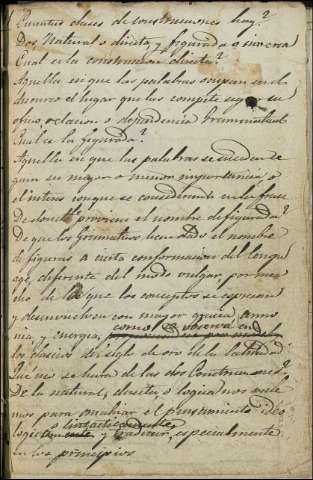 Cuantas clases de construcciones hay?
Dos Natural o directa, y figurada o inversa
Cual es la construccion directa?
Aquella en que las palabras ocupan en el
discurso el lugar que les compete segun su
oficio, relacion o dependencia gramatical
Cual es la figurada?
Aquella en que las palabras se suceden se
gun su mayor o menor importancia, o
el interes con que se consideran en la frase
De donde proviene el nombre de figurada?
De que los Gramaticos han dado el nombre
de figuras a cierta conformacion del lengu
age, diferente del modo vulgar, por me
dio de que los conceptos se espresan
y desenvuelven con mayor gracia, armo
nia y energia, como se observa en
los clasicos del siglo de oro de la latinidad
Que uso se hara de las dos Construcciones?
De la natural, directa o logica nos vale
mos para analizar el pensamiento ideo
logica o sintacticamente
y traducir, especialmente
en los principios